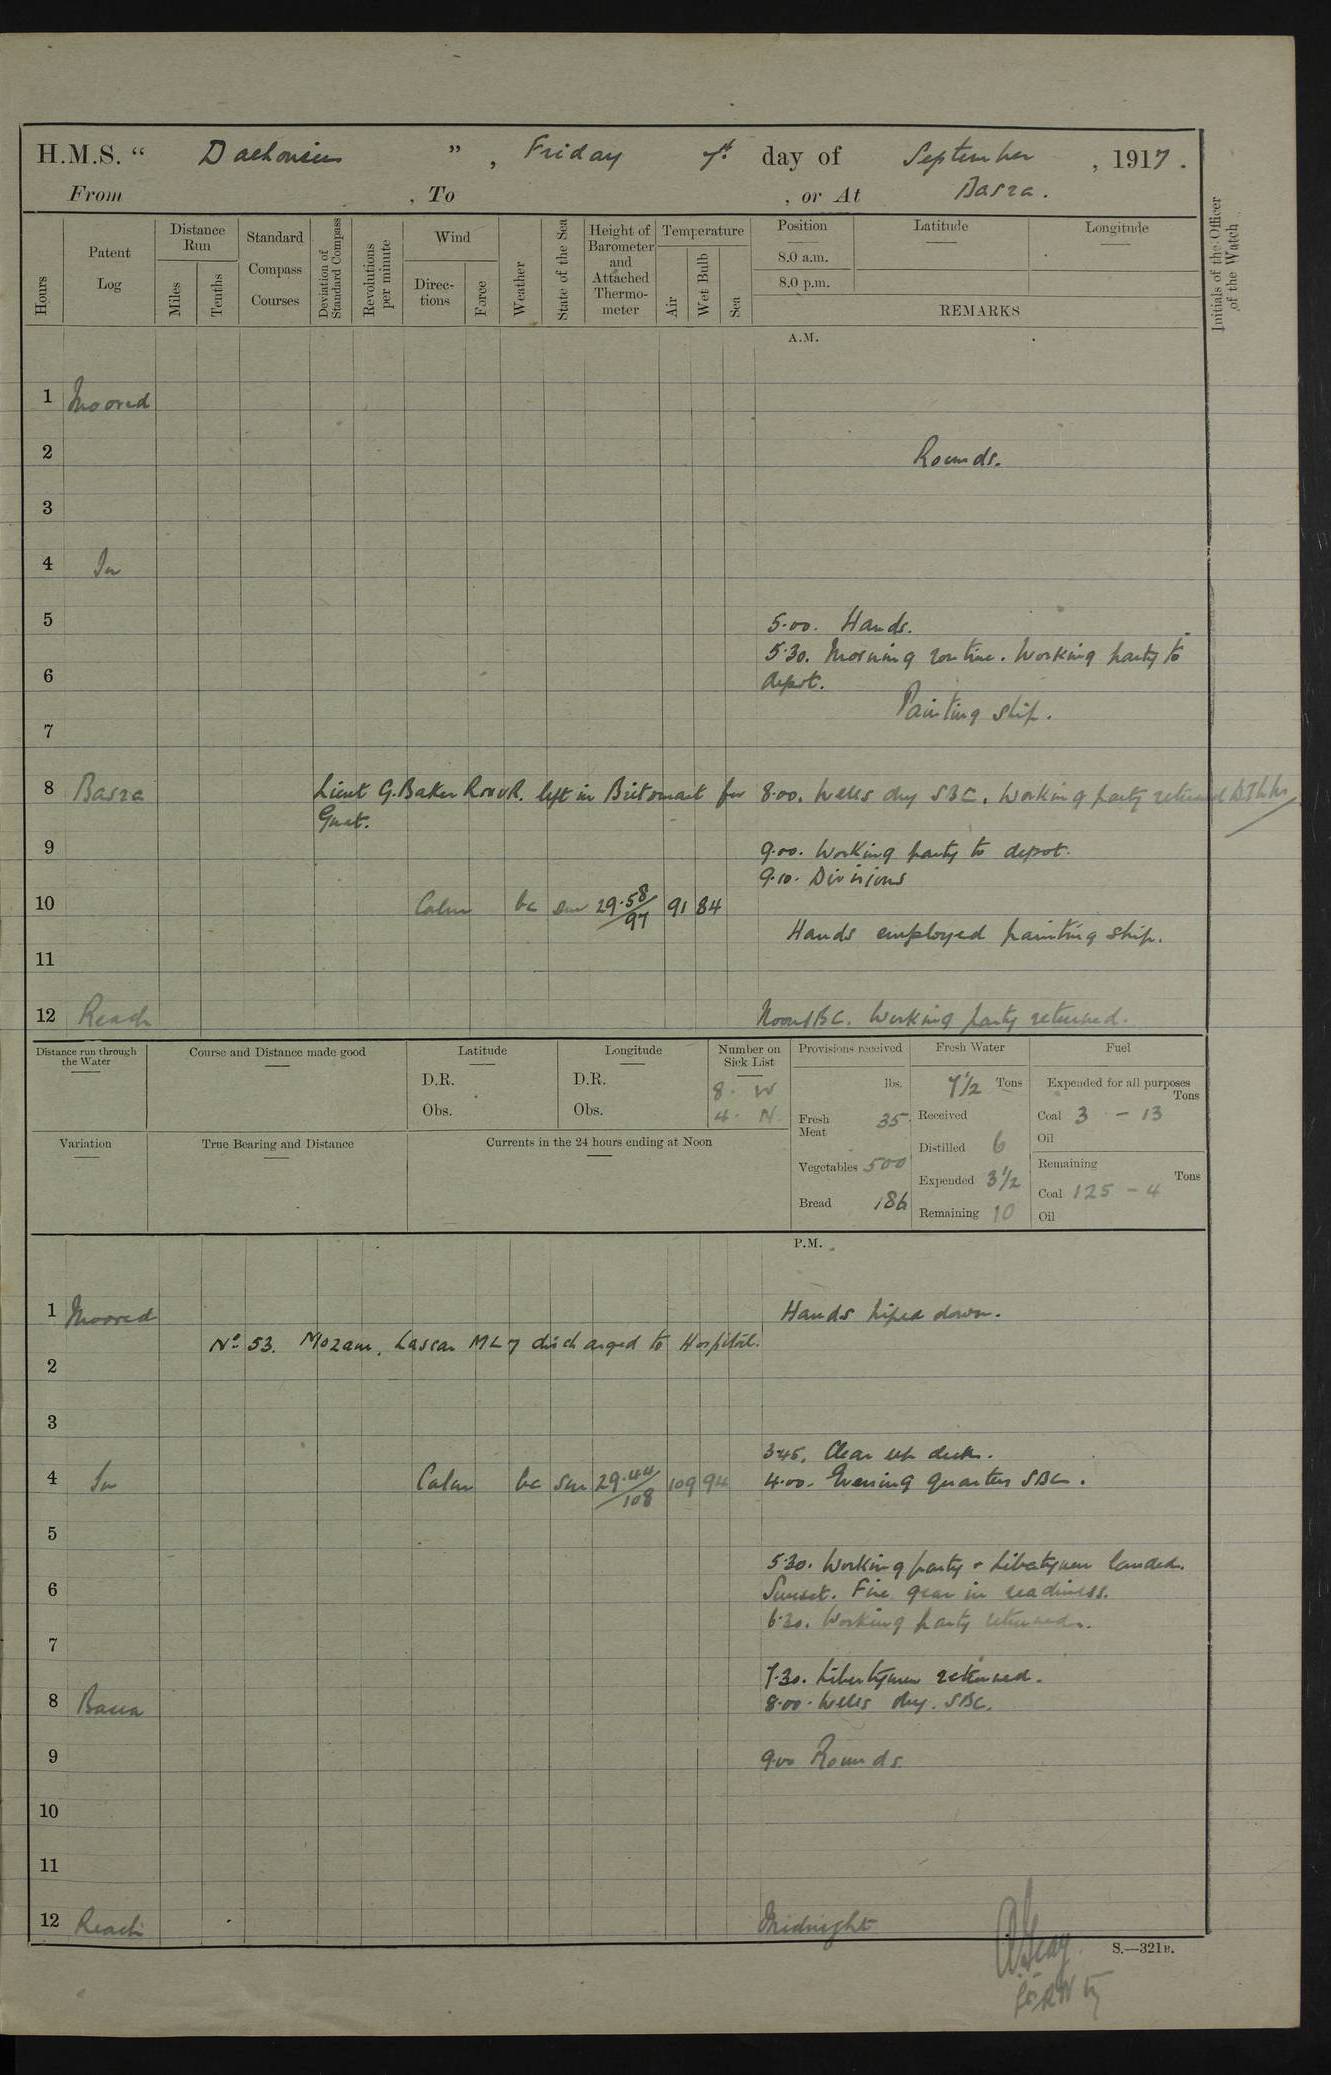 H.M.S. " Dalhousie " , Friday 7th day of September , 1917 .
From , To , or At Basra .
Hours
Patent Log
Distance Run
Miles
Tenths
Standard Compass Courses
Deviation of Standard Compass
Revolutions per minute
Wind
Directions
Force
Weather
State of the Sea
Height of Barometer and Attached Thermometer
Temperature
Air
Wet Bulb
Sea
Position
8.0 a.m.
8.0 p.m.
Latitude
Longitude
REMARKS
Initials of the Officer of the Watch
A.M.
1 Moored
2 Rounds.
3
4 In
5 5.00. Hands.
5.30. Morning routine. Working party to
6 depot.
Painting ship.
7
8 Basra Lieut G. Baker RNVR. left in Britomart for 8.00. Wells dry SBC. Working party returned
Gnat.
9 9.00. Working party to depot.
9.10. Divisions
10 Calm bc sm 29.58/97 91 84
Hands employed painting ship.
11
12 Reach Noon SBC. Working party returned.
Distance run through the Water
Course and Distance made good
Latitude
D.R.
Obs.
Longitude
D.R.
Obs.
Number on Sick List
8. W
4. N
Provisions received
lbs.
Fresh Meat 35
Vegetables 500
Bread 186
Fresh Water
7 1/2 Tons
Received
Distilled 6
Expended 3 1/2
Remaining 10
Fuel
Expended for all purposes
Tons
Coal 3 - 13
Oil
Remaining
Tons
Coal 125 - 4
Oil
Variation
True Bearing and Distance
Currents in the 24 hours ending at Noon
P.M.
1 Moored Hands piped down.
No 53. Mozam, Lascar ML 7 discharged to Hospital.
2
3
3.45. Clear up decks.
4 In Calm bc sm 29.44/108 109 94 4.00. Evening quarters SBC.
5
5.30. Working party & Libertymen landed.
6 Sunset. Fire gear in readiness.
6.30. Working party returned.
7
7.30. Libertymen returned.
8 Basra 8.00. Wells dry. SBC.
9 9.00 Rounds.
10
11
12 Reach Midnight
S.—321B.